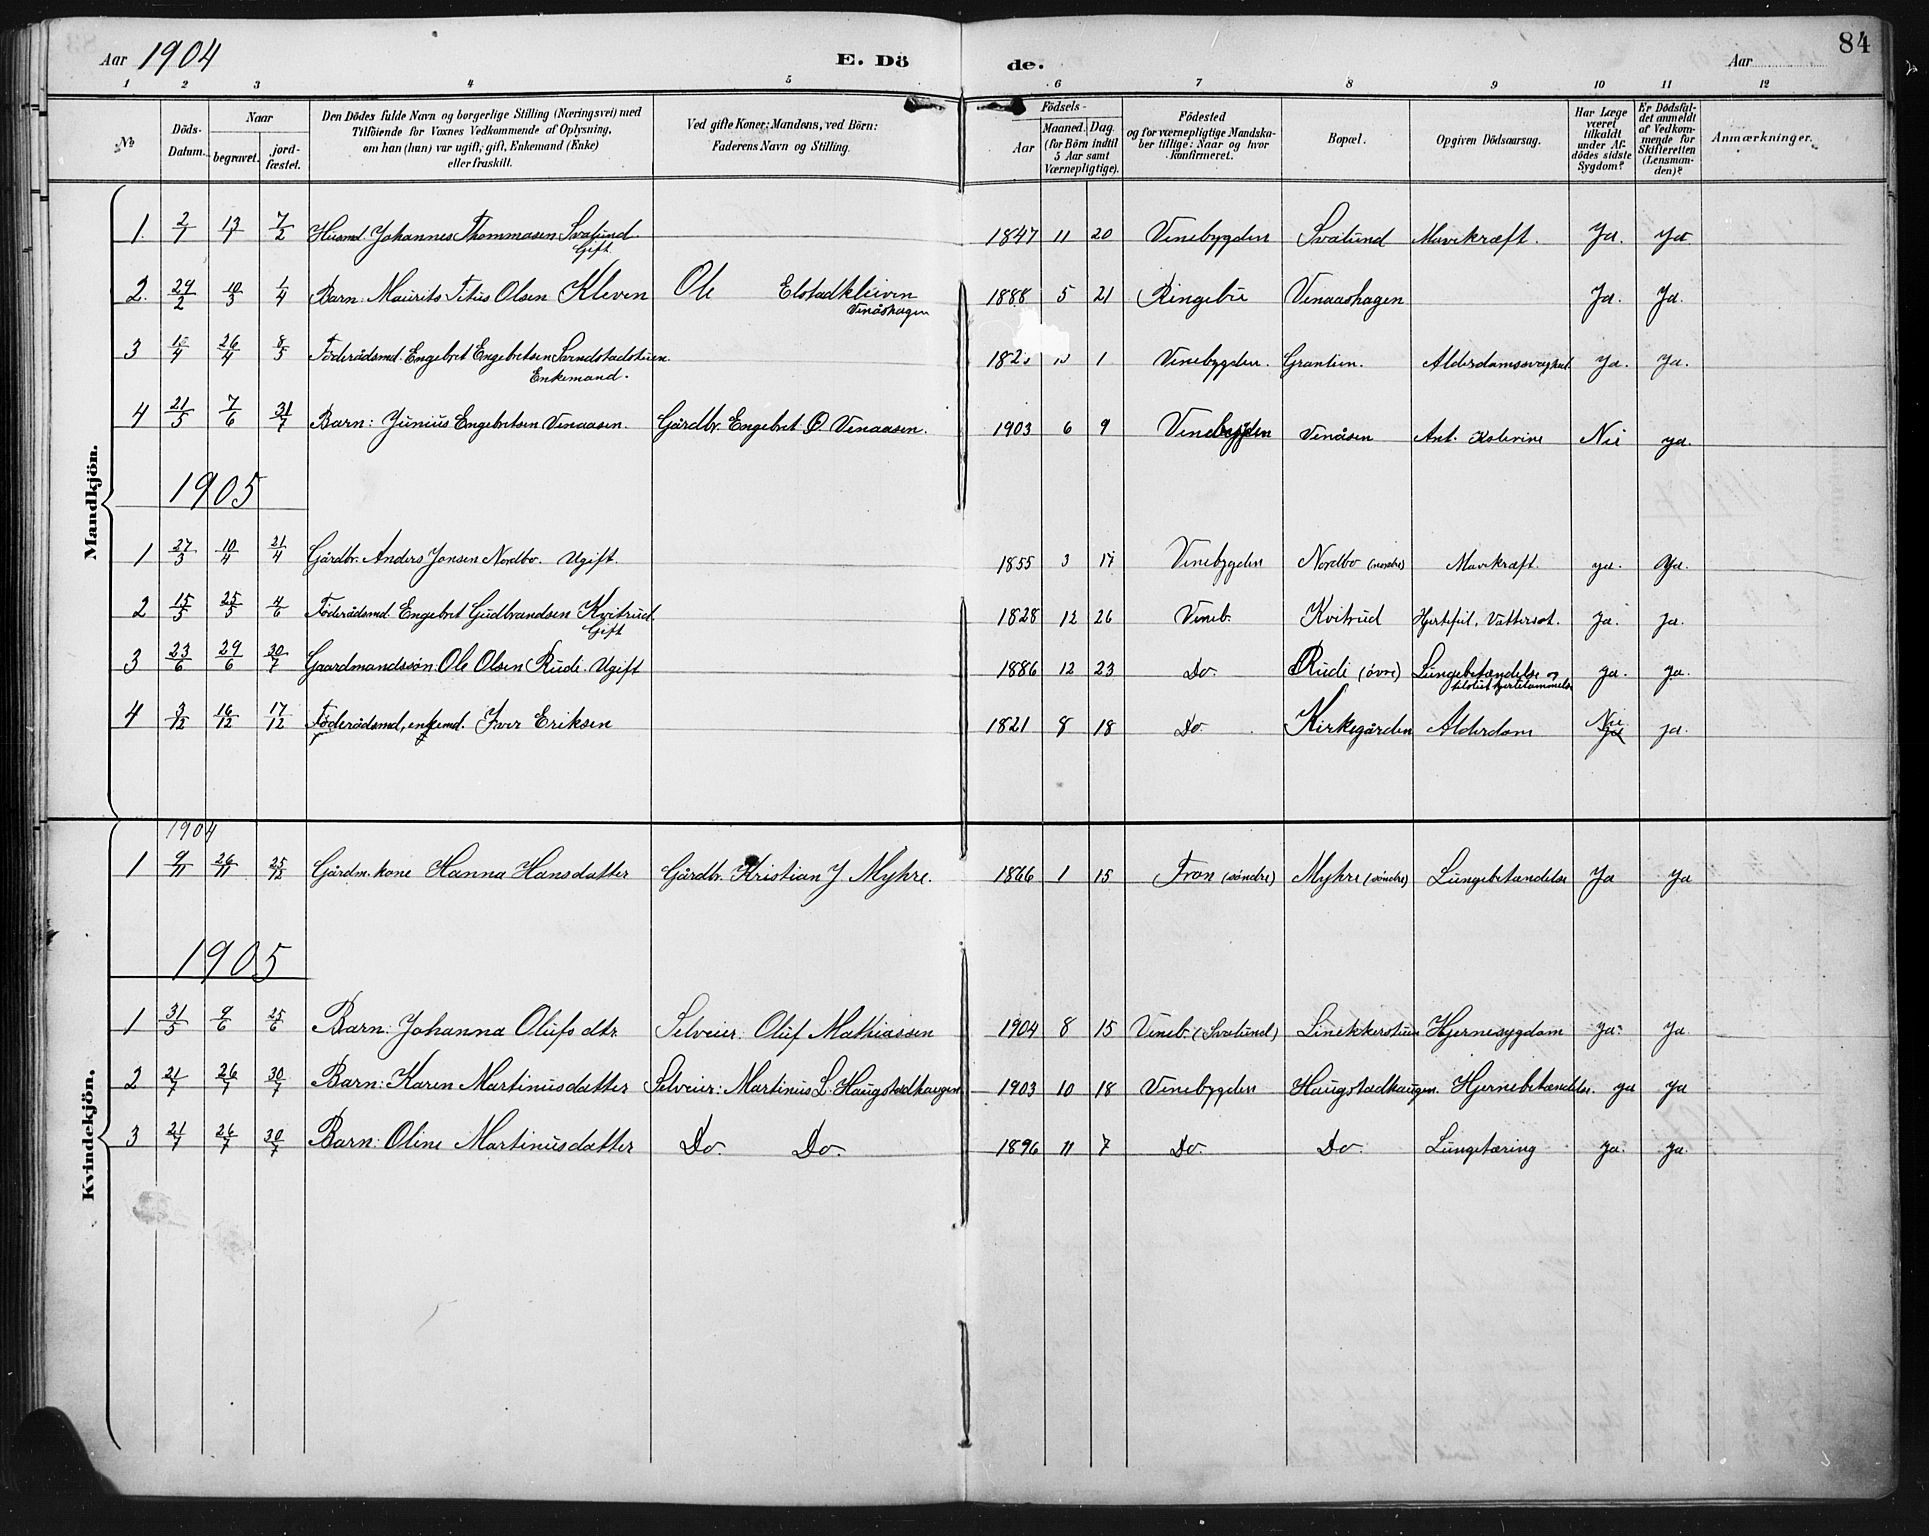 Aar 1904 E. Döde. Aar 84
1 2 3 4 5 6 7 8 9 10 11 12
No
Döds-Datum.
Naar begravet. jord-fæstet.
Den Dödes fulde Navn og borgerlige Stilling (Næringsvei) med
Tilföiende for Voxnes Vedkommende af Oplysning,
om han (hun) var ugift, gift, Enkemand (Enke)
eller fraskilt.
Ved gifte Koner: Mandens, ved Börn:
Faderens Navn og Stilling.
Födsels-
Aar Maaned. Dag.
(for Börn indtil
5 Aar samt
Værnepligtige).
Födested
og for værnepligtige Mandska-
ber tillige: Naar og hvor
konfirmeret.
Bopæl.
Opgiven Dödsaarsag.
Har Læge
været
tilkaldt
under Af-
dödes sidste
Sygdom?
Er Dödsfal-
det anmeldt
af Vedkom-
mende for
Skifteretten
(Lensman-
den)?
Anmærkninger.
Mandkjön.
1. 2/1 13/1 7/2 Husmd Johannes Thommasen Svalund. Gift. 1847 11 20 Venebygden Svalund Mavekræft. Ja. Ja
2. 29/2 10/3 1/4 Barn: Maurits Titus Olsen Kleven Ole Elstadkleiven 1888 5 21 Ringebu Venaashagen Ja. Ja.
Venåshagen
3 /4 26/4 8/5 Föderådsmd. Engebret Engebretsen 182 1 Venebygden. Grantien. Alderdomssvaghed Ja. Ja.
Enkemand.
4 21/5 7/6 31/7 Barn: Junius Engebretsen Venaasen. Gårdbr. Engebret O. Venaasen. 1903 6 9 Venebygden Venåsen Ant. Kolerine Nei ja.
1905
1 27/3 10/4 21/4 Gårdbr. Anders Jonsen Nordbo. Ugift. 1855 3 17 Venebygden Nordbo (nordre) Mavekræft. ja. Ja.
2 15/5 25/5 4/6 Föderådsmd. Engebret Gudbrandsen Kvitrud. 1828 12 26 Veneb. Kvitrud Hjertefeil, Vattersot. ja. ja.
Gift
3 23/6 29/6 30/7 Gaardmandssön Ole Olsen Rudi. Ugift 1886 12 23 Do. Rudi (övre) Lungebetændelse og ja. ja.
4 3/12 16/12 17/12 Föderådsmd, enkemd. Iver Eriksen 1821 8 18 Do. Kirkegården Alderdom Nei ja.
Kvindekjön.
1904
1 9/11 26/11 25/12 Gårdm. kone Hanna Hansdatter Gårdbr. Kristian J Myhre. 1866 1 15 Fron (söndre) Myhre (söndre) Lungebetændelse Ja Ja
1905
1 31/5 9/6 25/6 Barn: Johanna Olufs dtr. Selveier: Oluf Mathiassen 1904 8 15 Veneb. (Svalund) Hjernesygdom ja. ja
2 21/7 26/7 30/7 Barn: Karen Martinusdatter Selveier: Martinus L. Haugstadhaugen 1903 10 18 Venebygden Haugstadhaugen. Hjernebetændelse. ja ja
3 21/7 26/7 30/7 Barn: Oline Martinusdatter Do. Do. 1896 11 7 Do. Do. Lungetæring ja. ja.